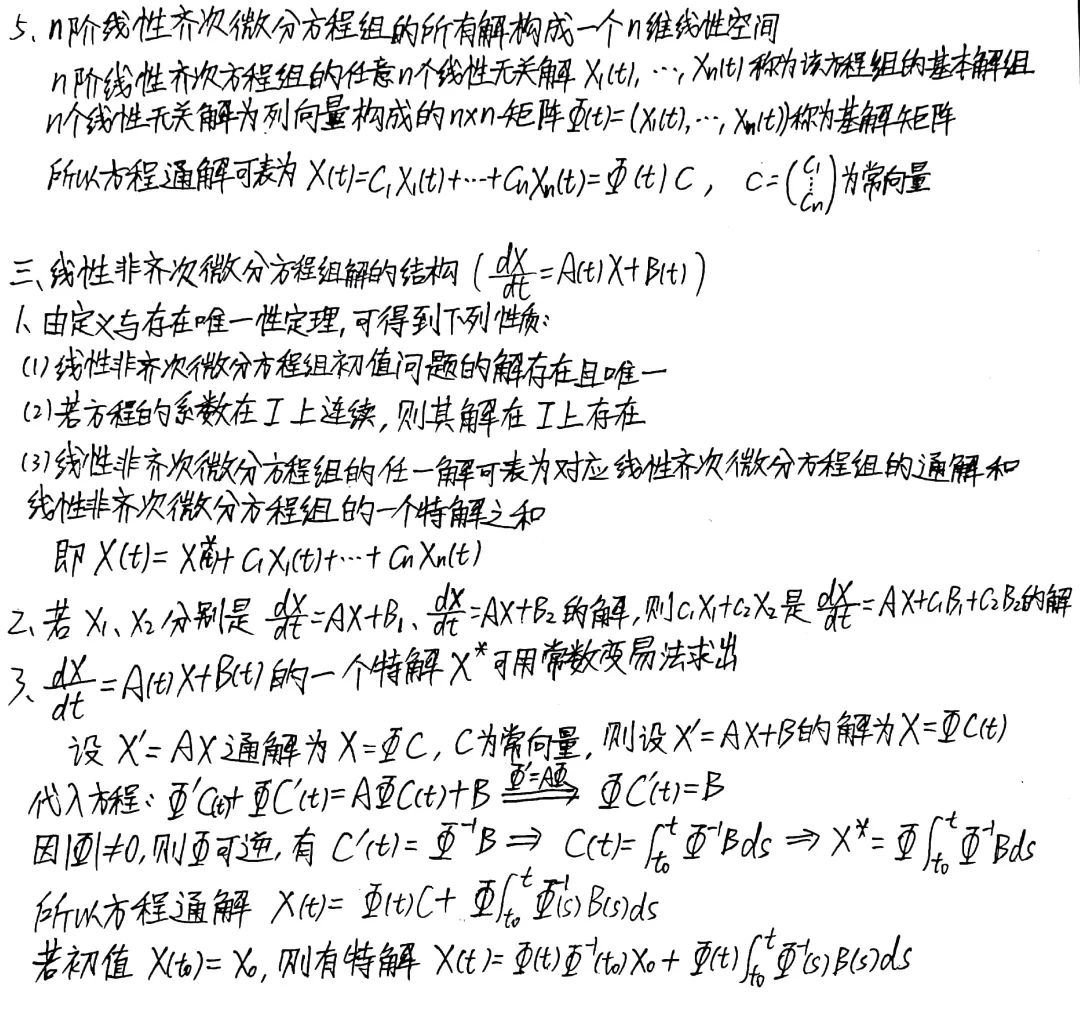 5、n阶线性齐次微分方程组的所有解构成一个n维线性空间
n阶线性齐次方程组的任意n个线性无关解 X₁(t), ⋯, Xₙ(t) 称为该方程组的基本解组
n个线性无关解为列向量构成的n×n矩阵Φ(t)=(X₁(t),⋯, Xₙ(t))称为基解矩阵
所以方程通解可表为 X(t)=C₁X₁(t)+⋯+CₙXₙ(t)=Φ(t)C, C=(C₁ ⋮ Cₙ)为常向量
三、线性非齐次微分方程组解的结构 (dX/dt=A(t)X+B(t))
1、由定义与存在唯一性定理,可得到下列性质:
(1)线性非齐次微分方程组初值问题的解存在且唯一
(2)若方程的系数在I上连续,则其解在I上存在
(3)线性非齐次微分方程组的任一解可表为对应线性齐次微分方程组的通解和
线性非齐次微分方程组的一个特解之和
即 X(t)= X*(t)+C₁X₁(t)+⋯+CₙXₙ(t)
2、若 X₁、X₂分别是 dX/dt=AX+B₁、dX/dt=AX+B₂的解,则C₁X₁+C₂X₂是 dX/dt=AX+C₁B₁+C₂B₂的解
3、dX/dt=A(t)X+B(t)的一个特解X*可用常数变易法求出
设 X'=AX通解为X=ΦC, C为常向量, 则设X'=AX+B的解为X=ΦC(t)
代入方程: Φ'C(t)+ΦC'(t)=AΦC(t)+B ⟹(Φ'=AΦ) ΦC'(t)=B
因|Φ|≠0,则Φ可逆,有 C'(t)=Φ⁻¹B ⇒ C(t)=∫_{t₀}^{t}Φ⁻¹Bds ⇒ X*=Φ∫_{t₀}^{t}Φ⁻¹Bds
所以方程通解 X(t)=Φ(t)C+Φ∫_{t₀}^{t}Φ⁻¹(s)B(s)ds
若初值 X(t₀)=X₀, 则有特解 X(t)=Φ(t)Φ⁻¹(t₀)X₀+Φ(t)∫_{t₀}^{t}Φ⁻¹(s)B(s)ds